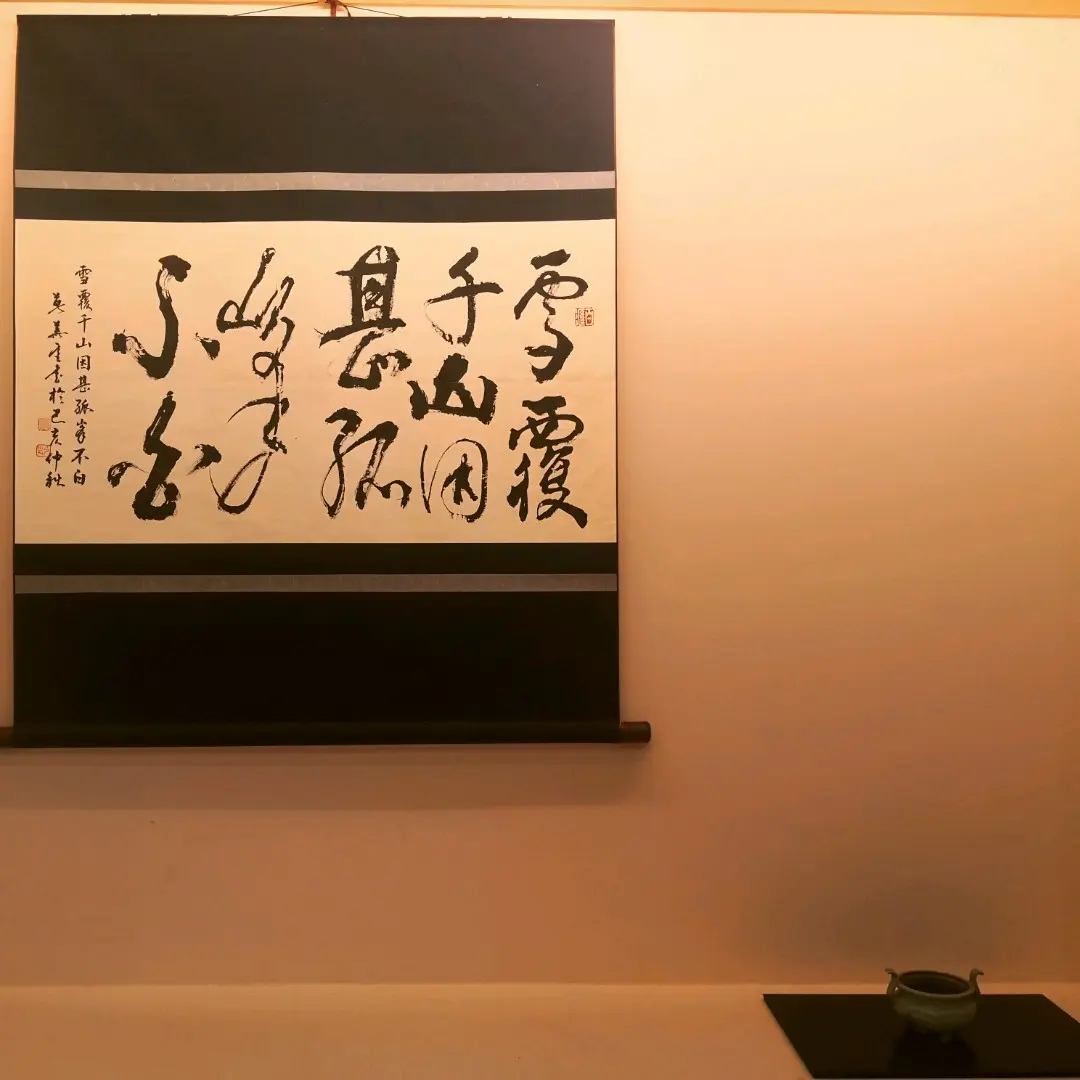 雪覆
千山因
甚孤
峰
不白
雪覆千山因甚孤峯不白
書於己亥仲秋